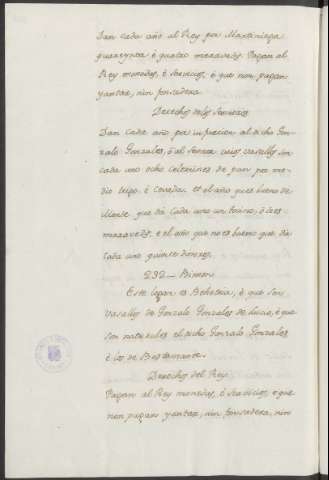 Dan cada año al Rey por Martiniega
quarenta é quatro maravedis. Pagan al
Rey monedas, é servicios, é que non pagan
yantar, nin fonsadera.
Derechos de los Señores
Dan cada año por infurcion al dicho Gon-
zalo Gonzales, ó al Señor cuios vasallos son
cada uno ocho celemines de pan por me-
dio trigo, é cevada. et el año que es bueno de
simiente que dá cada uno un tocino, ó seis
maravedis, e el año que no es bueno que dá
cada uno quince dineros.
232 - Bimon
Este logar es Behetria, é que son
Vasallos de Gonzalo Gonzales de Lucio, é que
son naturales el dicho Gonzalo Gonzales
é los de Bustamante.
Derechos del Rey.
Pagan al Rey monedas, é servicios, e que
non pagan yantar, nin fonsadera, nin